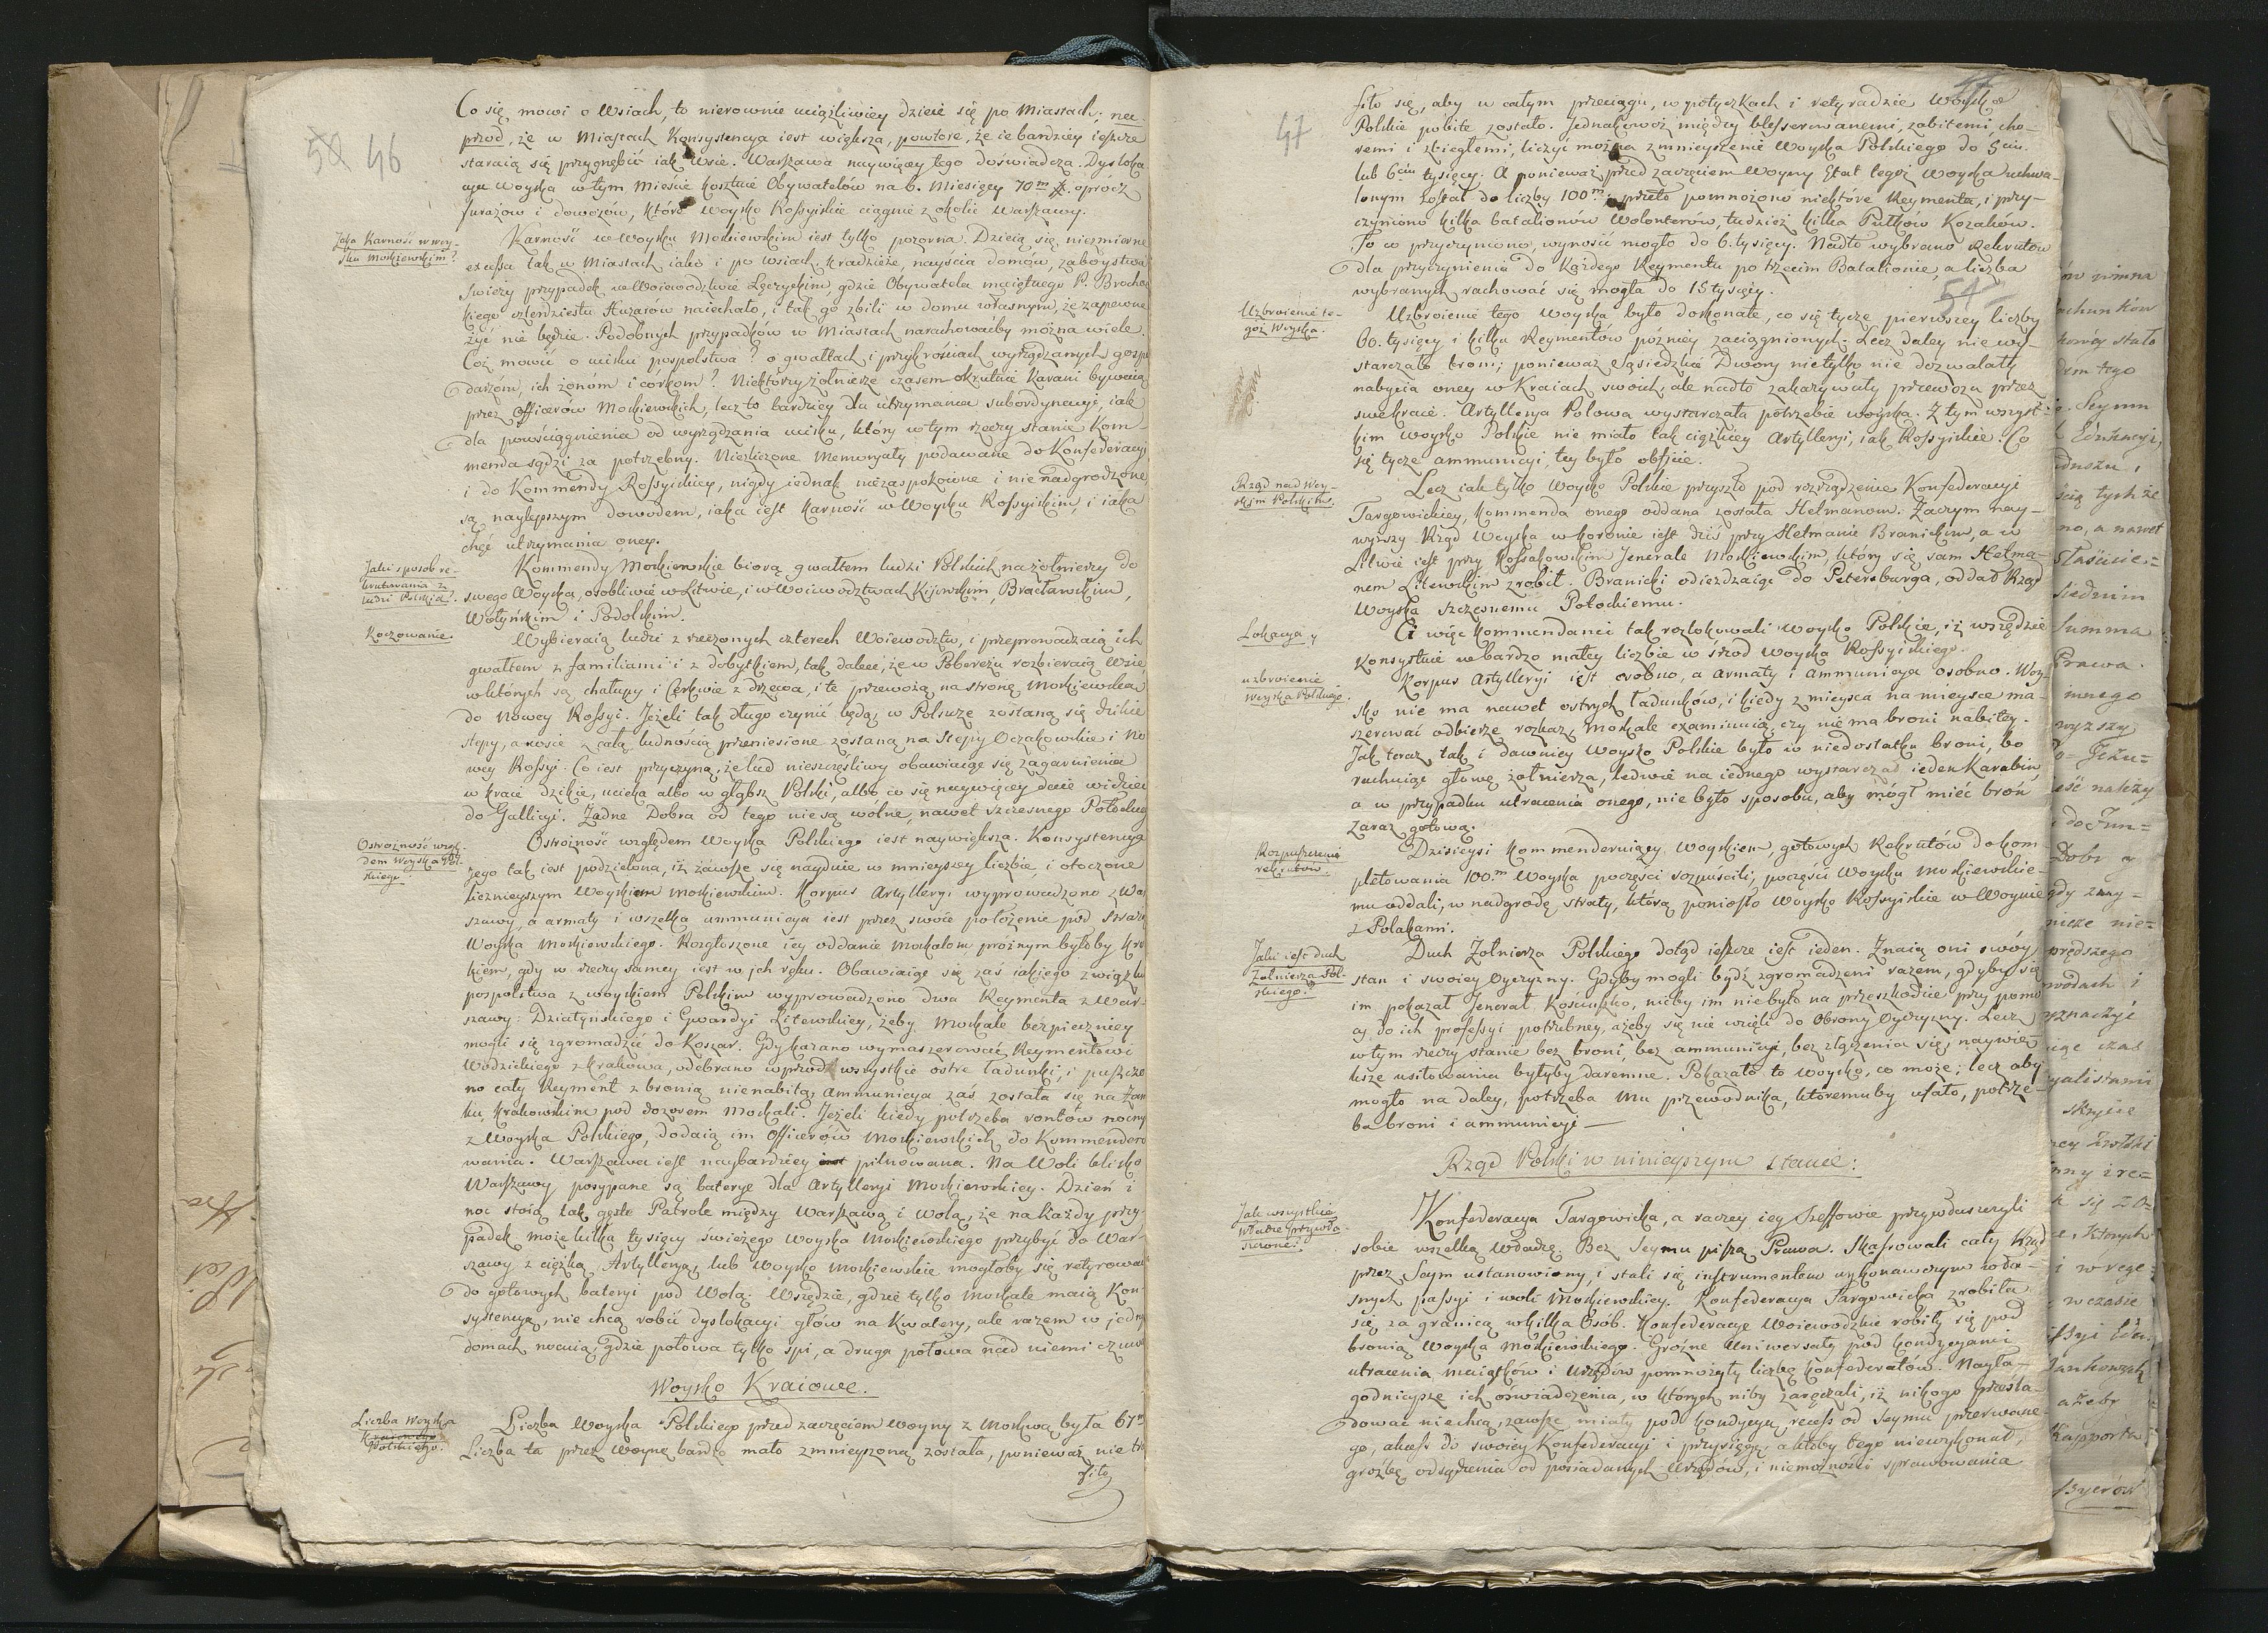 58 46
Co się mowi o Wsiach, to nierownie uciążliwiey dzieie się po Miastach: nay-
przod, że w Miastach Konsystencya iest większa, powtore, że ie bardziey ieszcze
staraią się przygnębić iak Wsie. Warszawa naywięcey tego doświadcza. Dysloka
cya Woyska w tym Mieście kosztuie Obywatelów na 6. Miesięcy 70m # oprócz
furażow i dowozów, które Woysko Rossyiskie ciągnie z okolic Warszawy.
Jaka Karność w woy-
sku Moskiewskim?
Karność w Woysku Moskiewskim iest tylko pozorna. Dzieią się niezmierne
excessa tak w Miastach iako i po wsiach, kradzieże, nayścia domów, zaboystwa
Swieży przypadek w Woiewodztwie Łęczyckim, gdzie Obywatela maiętnego P. Brochoc
kiego czterdziestu Huzarów naiechało, i tak go zbili w domu własnym, że zapewne
żyć nie będzie. Podobnych przypadków w Miastach narachowaćby można wiele.
Coż mowić o ucisku pospolstwa? o gwałtach i przykrościach wyrządzanych gospo
darzóm, ich żonóm i córkom? Niektórzy żołnierze czasem okrutnie Karani bywaią
przez Officerów Moskiewskich, lecz to bardziey dla utrzymania subordynacyi, iak
dla powściągnienia od wyrządzania ucisku, który w tym rzeczy stanie Kom-
menda sądzi za potrzebny. Niezliczone Memoryały podawane do Konfederacyi
i do Kommendy Rossyiskiey, nigdy iednak niezaspokoione i nie nadgrodzone,
są naylepszym dowodem, iaka iest Karność w Woysku Rossyiskim, i iaka
chęć utrzymania oney.
Jaki sposob re-
krutowania z
ludzi Polskich.
Kommendy Moskiewskie biorą gwałtem ludzi Polskich na żołnierzy do
swego Woyska, osobliwie w Litwie, i w Woiewodztwach Kijowskim, Bracławskim,
Wołyńskim i Podolskim.
Koczowanie.
Wybieraią ludzi z rzeczonych czterech Woiewodztw, i przeprowadzaią ich
gwałtem z familiami i z dobytkiem, tak dalece, że w Pobereżu rozbieraią Wsie
w których są chałupy i Cerkwie z drzewa, i te przewożą na stronę Moskiewską
do Nowey Rossyi. Jeżeli tak długo czynić będą, w Polszcze zostaną się dzikie
stepy, a wsie z całą ludnością przeniesione zostaną na Stepy Oczakowskie i No
wey Rossyi. Co iest przyczyną, że lud nieszczęśliwy obawiaiąc się zagarnienia
w kraie dzikie, ucieka albo w głąbsz Polski, albo co się naywięcey daie widzieć
do Gallicyi. Żadne Dobra od tego nie są wolne, nawet Szczesnego Potockieg
Ostrożność wzglę-
dem Woyska Pol-
skiego.
Ostrożność względem Woyska Polskiego iest naywiększa. Konsystencya
jego tak iest podzielona, iż zawsze się nayduie w mnieyszey liczbie, i otoczone
licznieyszym Woyskiem Moskiewskim. Korpus Artylleryi wyprowadzono z War
szawy, a armaty i wszelka ammunicya iest przez swoie położenie pod Strażą
Woyska Moskiewskiego. Rozgłoszone iey oddanie Moskalom próżnym byłoby kro
kiem, gdy w rzeczy samey iest w ich ręku. Obawiaiąc się zaś iakiego związku
pospolstwa z woyskiem Polskim wyprowadzono dwa Reymenta z War-
szawy: Działyńskiego i Gwardyi Litewskiey, żeby Moskale bezpieczniey
mogli się zgromadzić do Koszar. Gdy kazano wymaszerować Reymentowi
Wodzickiego z Krakowa, odebrano wprzod wszystkie ostre ładunki, i puszczo
no cały Reyment z bronią nienabitą, ammunicya zaś została się na Zam
ku Krakowskim pod dozorem Moskali. Jeżeli kiedy potrzeba rontów nocny
z Woyska Polskiego, dodaią im Officerów Moskiewskich do Kommendero
wania. Warszawa iest naybardziey pilnowana. Na Woli blisko
Warszawy posypane są baterye dla Artylleryi Moskiewskiey. Dzień i
noc stoią tak gęste Patrole między Warszawą i Wolą, że na każdy przy
padek może kilka tysięcy swieżego Woyska Moskiewskiego przybyć do War-
szawy z ciężką Artylleryą, lub Woysko Moskiewskie mogłoby się retyrować
do gotowych bateryi pod Wolą. Wszędzie, gdzie tylko Moskale maią Kon-
systencyą, nie chcą robić dyslokacyi głów na Kwatery, ale razem w jedny
domach nocuią, gdzie połowa tylko spi, a druga połowa nad niemi czuwa
Woysko Kraiowe.
Liczba Woyska
Kraiowego
Polskiego.
Liczba Woyska Polskiego przed zaczęciem Woyny z Moskwą była 67m
Liczba ta przez Woynę bardzo mało zmnieyszoną została, ponieważ nie tra
fiło
47
47
fiło się, aby w całym przeciągu, w potyczkach i retyradzie Woysko
Polskie pobite zostało. Jednakowoż między blesserowanemi, zabitemi, cho-
remi i zbiegłemi, liczyć można zmnieyszenie Woyska Polskiego do 5ciu
lub 6ciu tysięcy. A ponieważ przed zaczęciem Woyny Etat tegoż Woyska uchwa-
lonym został do liczby 100m przeto pomnożono niektóre Reymenta, i przy-
czyniono kilka batalionów Wolonterów, tudzież kilka Pułków Kozaków.
To co przyczyniono, wynosić mogło do 6. tysięcy. Nadto wybrano Rekrutów
dla przyczynienia do każdego Reymentu po trzecim Batalionie, a liczba
wybranych rachować się mogła do 15 tysięcy.
54
Uzbroienie te-
goż Woyska.
Uzbroienie tego Woyska było dokonałe, co się tycze pierwszey liczby
60. tysięcy i kilku Reymentów późniey zaciągnionych. Lecz daley nie wy-
starczało broni; ponieważ Sąsiedzkie Dwory nietylko nie dozwalały
nabycia oney w Kraiach swoich, ale nadto zakazywały przewozu przez
swe kraie. Artyllerya Polowa wystarczała potrzebie woyska. Z tym wszyst-
kim Woysko Polskie nie miało tak ciężkiey Artylleryi, iak Rossyiskie. Co
się tycze ammunicyi, tey było obficie.
Rząd nad Woy-
skiem Polskim.
Lecz iak tylko Woysko Polskie przyszło pod rozrządzenie Konfederacyi
Targowickiey, Kommenda onego oddana została Hetmanom. Zaczym nay-
wyższy Rząd Woyska w koronie iest dziś przy Hetmanie Branickim, a w
Litwie iest przy Kossakowskim Jenerale Moskiewskim, który się sam Hetma-
nem Litewskim zrobił. Branicki odieżdzaiąc do Petersburga, oddał Rząd
Woyska Szczęsnemu Potockiemu.
Lokacya y
Ci więc kommendanci tak rozlokowali Woysko Polskie, iż wszędzie
Konsystuie w bardzo małey liczbie w śrzod Woyska Rossyiskiego.
uzbroienie
Woyska Polskiego.
Korpus Artylleryi iest osobno, a armaty i ammunicya osobno. Woy-
sko nie ma nawet ostrych ładunków, i kiedy z mieysca na mieysce ma-
szerować odbierze rozkaz, Moskale examinuią, czy nie ma broni nabitey.
Jak teraz, tak i dawniey Woysko Polskie było w niedostatku broni, bo
rachuiąc głowę żołnierza, ledwie na iednego wystarczał ieden Karabin
a w przypadku utracenia onego, nie było sposobu, aby mógł mieć broń
zaraz gotową.
Rozpuszczenie
rekrutów.
Dzisieysi kommenderuiący Woyskiem, gotowych Rekrutów do kom-
pletowania 100m Woyska poczęści rozpuścili, poczęści Woysku Moskiewskie-
mu oddali, w nadgrodę straty, którą poniosło Woysko Rossyiskie w Woynie
z Polakami.
Jaki iest duch
Żołnierza Pol-
skiego?
Duch Żołnierza Polskiego dotąd ieszcze iest ieden. Znaią oni swóy
stan i swoiey Oyczyzny. Gdyby mogli bydź zgromadzeni razem, gdyby się
im pokazał Jenerał Kościuszko, nicby im niebyło na przeszkodzie przy pomo
cy do ich professyi potrzebney, ażeby się nie wzięli do Obrony Oyczyzny. Lecz
w tym rzeczy stanie bez broni, bez ammunicyi, bez złączenia się, naywię
ksze usiłowania byłyby daremne. Pokazało to Woysko, co może; lecz aby
mogło na daley, potrzeba mu przewodnika, któremuby ufało, potrze-
ba broni i ammunicyi —
Rząd Polski w ninieyszym stanie:
Jak wszystkie
władze przywła-
szczone?
Konfederacya Targowicka, a raczey iey Szeffowie przywłaszczyli
sobie wszelką Władzę. Bez Seymu piszą Prawa. Skassowali cały Rząd
przez Seym ustanowiony, i stali się instrumentem wykonawczym wła-
snych passyi i woli Moskiewskiey. Konfederacya Targowicka zrobiła
się za granicą w kilka Osob. Konfederacye Woiewodzkie robiły się pod
bronią Woyska Moskiewskiego. Groźne Uniwersały pod kondycyami
utracenia maiątków i Urzędów pomnożyły liczbę konfederatów. Nayła-
godnieysze ich oświadczenia, w których niby zaręczali, iż nikogo prześla-
dować niechcą, zawsze miały pod kondycyą, recess od Seymu przerwane-
go, akcess do swoiey Konfederacyi i przysięgę, a ktoby tego niewykonał,
groźbę odsądzenia od posiadanych Urzędów, i niemożności sprawowania